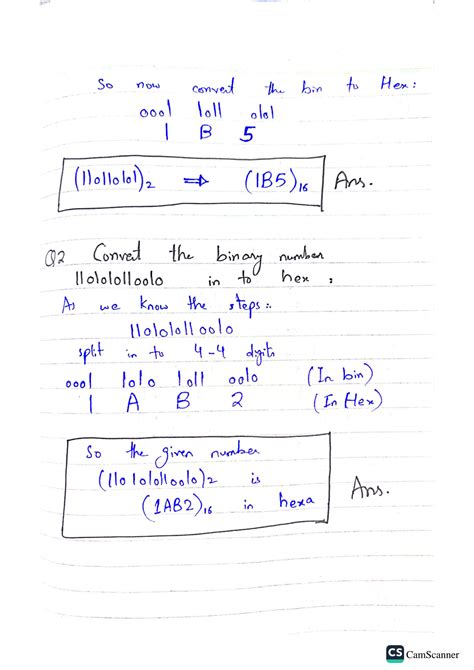 So now convert the bin to Hex:
0001 1011 0101
1 B 5
(110110101)₂ ⇒ (1B5)₁₆ Ans.
Q2 Convert the binary number
1101010110010 in to hex,
As we know the steps:
1101010110010
split in to 4-4 digits
0001 1010 1011 0010 (In bin)
1 A B 2 (In Hex)
So the given number
(1101010110010)₂ is
(1AB2)₁₆ in hexa Ans.
CS CamScanner